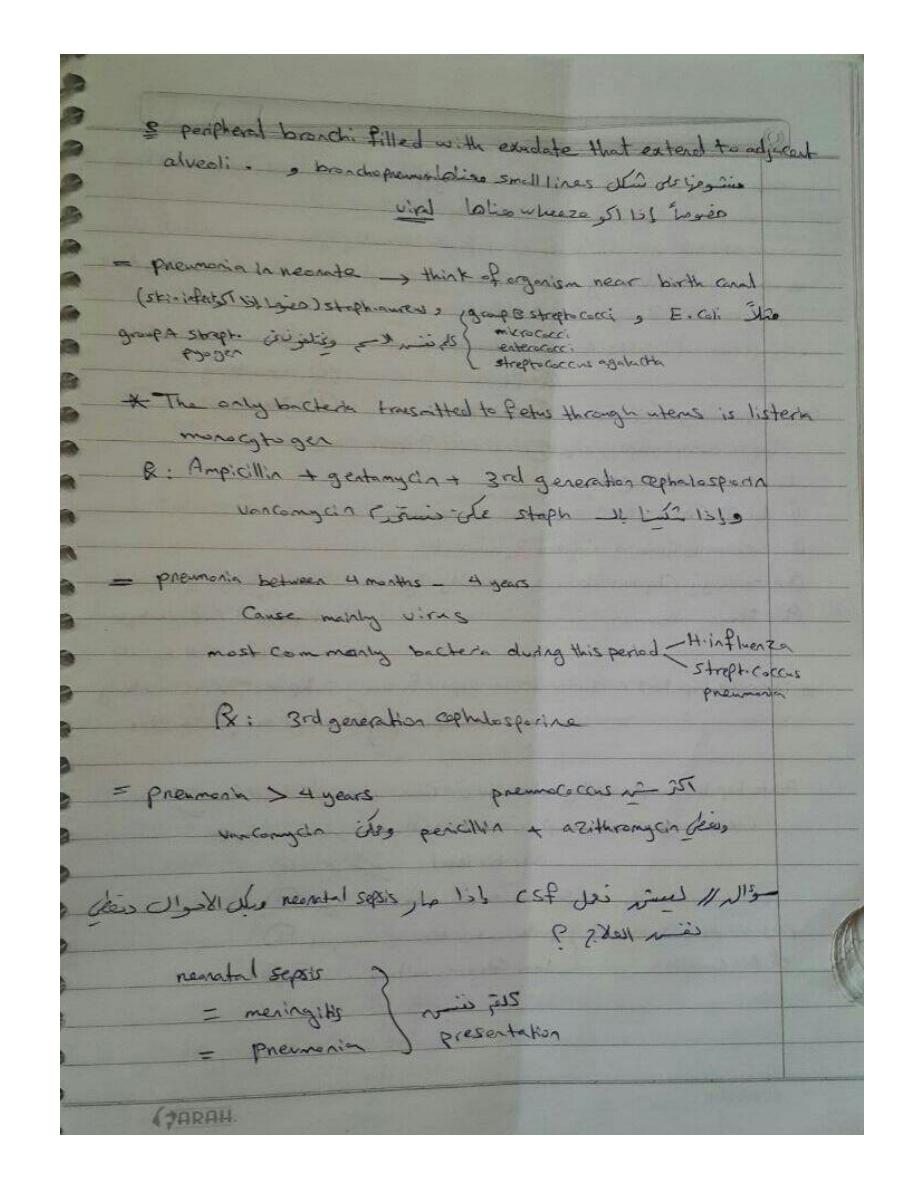 peripheral bronchi filled with exudate that extend to adjacent
alveoli . و bronchopneumonia معناها small lines منشوفها على شكل
خصوصاً إذا اكو wheeze معناها viral
= pneumonia in neonate → think of organism near birth canal
مثلاً E.coli و group B streptococci و staph.aureus (خصوصا إذا اكو skin infect)
micrococci
enterococci
streptococcus agalactia
كلهم نفس الاسم ويختلفون عن group A strept.
pyogen
* The only bacteria transmitted to fetus through uterus is listeria
monocytogen
R: Ampicillin + gentamycin + 3rd generation cephalosporin
وإذا شكينا بالـ staph ممكن نستخدم vancomycin
= pneumonia between 4 months - 4 years
Cause mainly virus
most commonly bacteria during this period H.influenza
streptococcus
pneumonia
R: 3rd generation cephalosporine
= pneumonia > 4 years اكثر شي pneumococcus
ونعطي azithromycin + penicillin وممكن vancomycin
سؤال // ليش نعمل csf إذا صار neonatal sepsis وبكل الاحوال دنعطي
نفس العلاج ؟
neonatal sepsis
= meningitis
= pneumonia
كلهم نفس
presentation
SARAH.